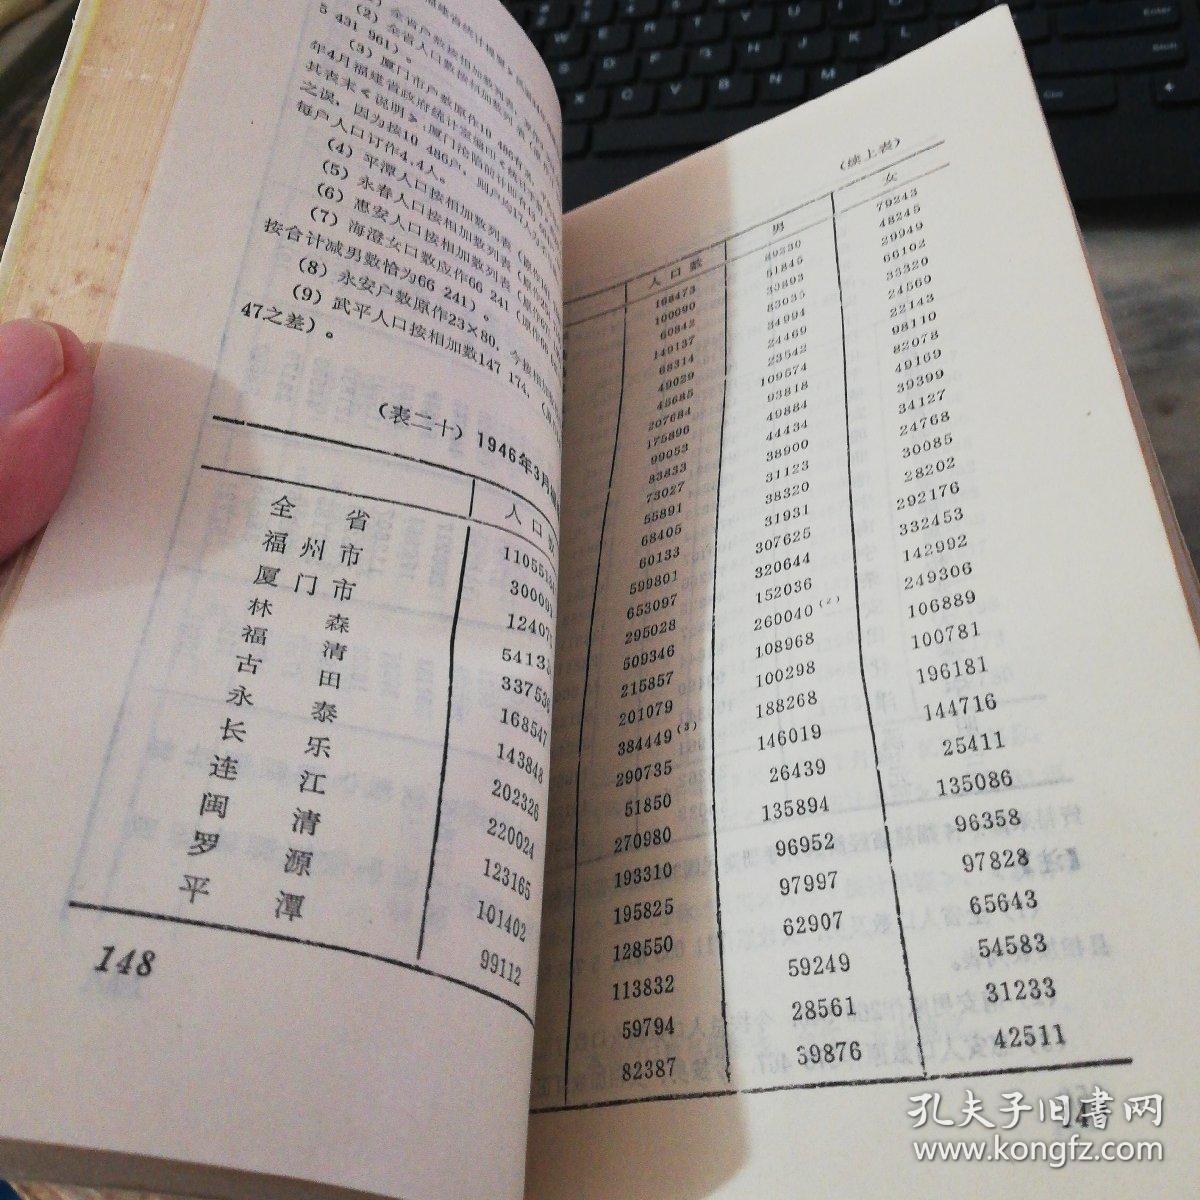 (2) 全省人口数按相加数列表
5 431 961)。
(3) 厦门市户数原作10 486有
年4月福建省政府统计室编印《统计
其表末《说明》:厦门市
之误，因为按10 486户，则户均17人
每户人口订作4.4人。
(4) 平潭人口按相加数列表
(5) 永春人口按相加数列表
(6) 惠安人口按相加数列表
(7) 海澄女口数应作66 241
按合计减男数恰为66 241)。
(8) 永安户数原作23×80,
(9) 武平人口按相加数147 174,
47之差)。
(表二十) 1946年3月
人口数
全省 110551
福州市 30009
厦门市 12407
林森 54133
福清 337536
古田 168547
永泰 143848
长乐 202326
连江 220024
闽清 123165
罗源 101402
平潭 99112
148
(续上表)
人口数 男 女
168473 89230 79243
100090 51845 48245
60842 30893 29949
149137 83035 66102
68314 34994 33320
49029 24469 24560
45685 23542 22143
207684 109574 98110
175896 93818 82078
99053 49884 49169
83833 44434 39399
73027 38900 34127
55891 31123 24768
68405 38320 30085
60133 31931 28202
599801 307625 292176
653097 320644 332453
295028 152036 142992
509346 260040(2) 249306
215857 108968 106889
201079 100298 100781
384449(3) 188268 196181
290735 146019 144716
51850 26439 25411
270980 135894 135086
193310 96952 96358
195825 97997 97828
128550 62907 65643
113832 59249 54583
59794 28561 31233
82387 39876 42511
孔夫子旧书网
www.kongfz.com